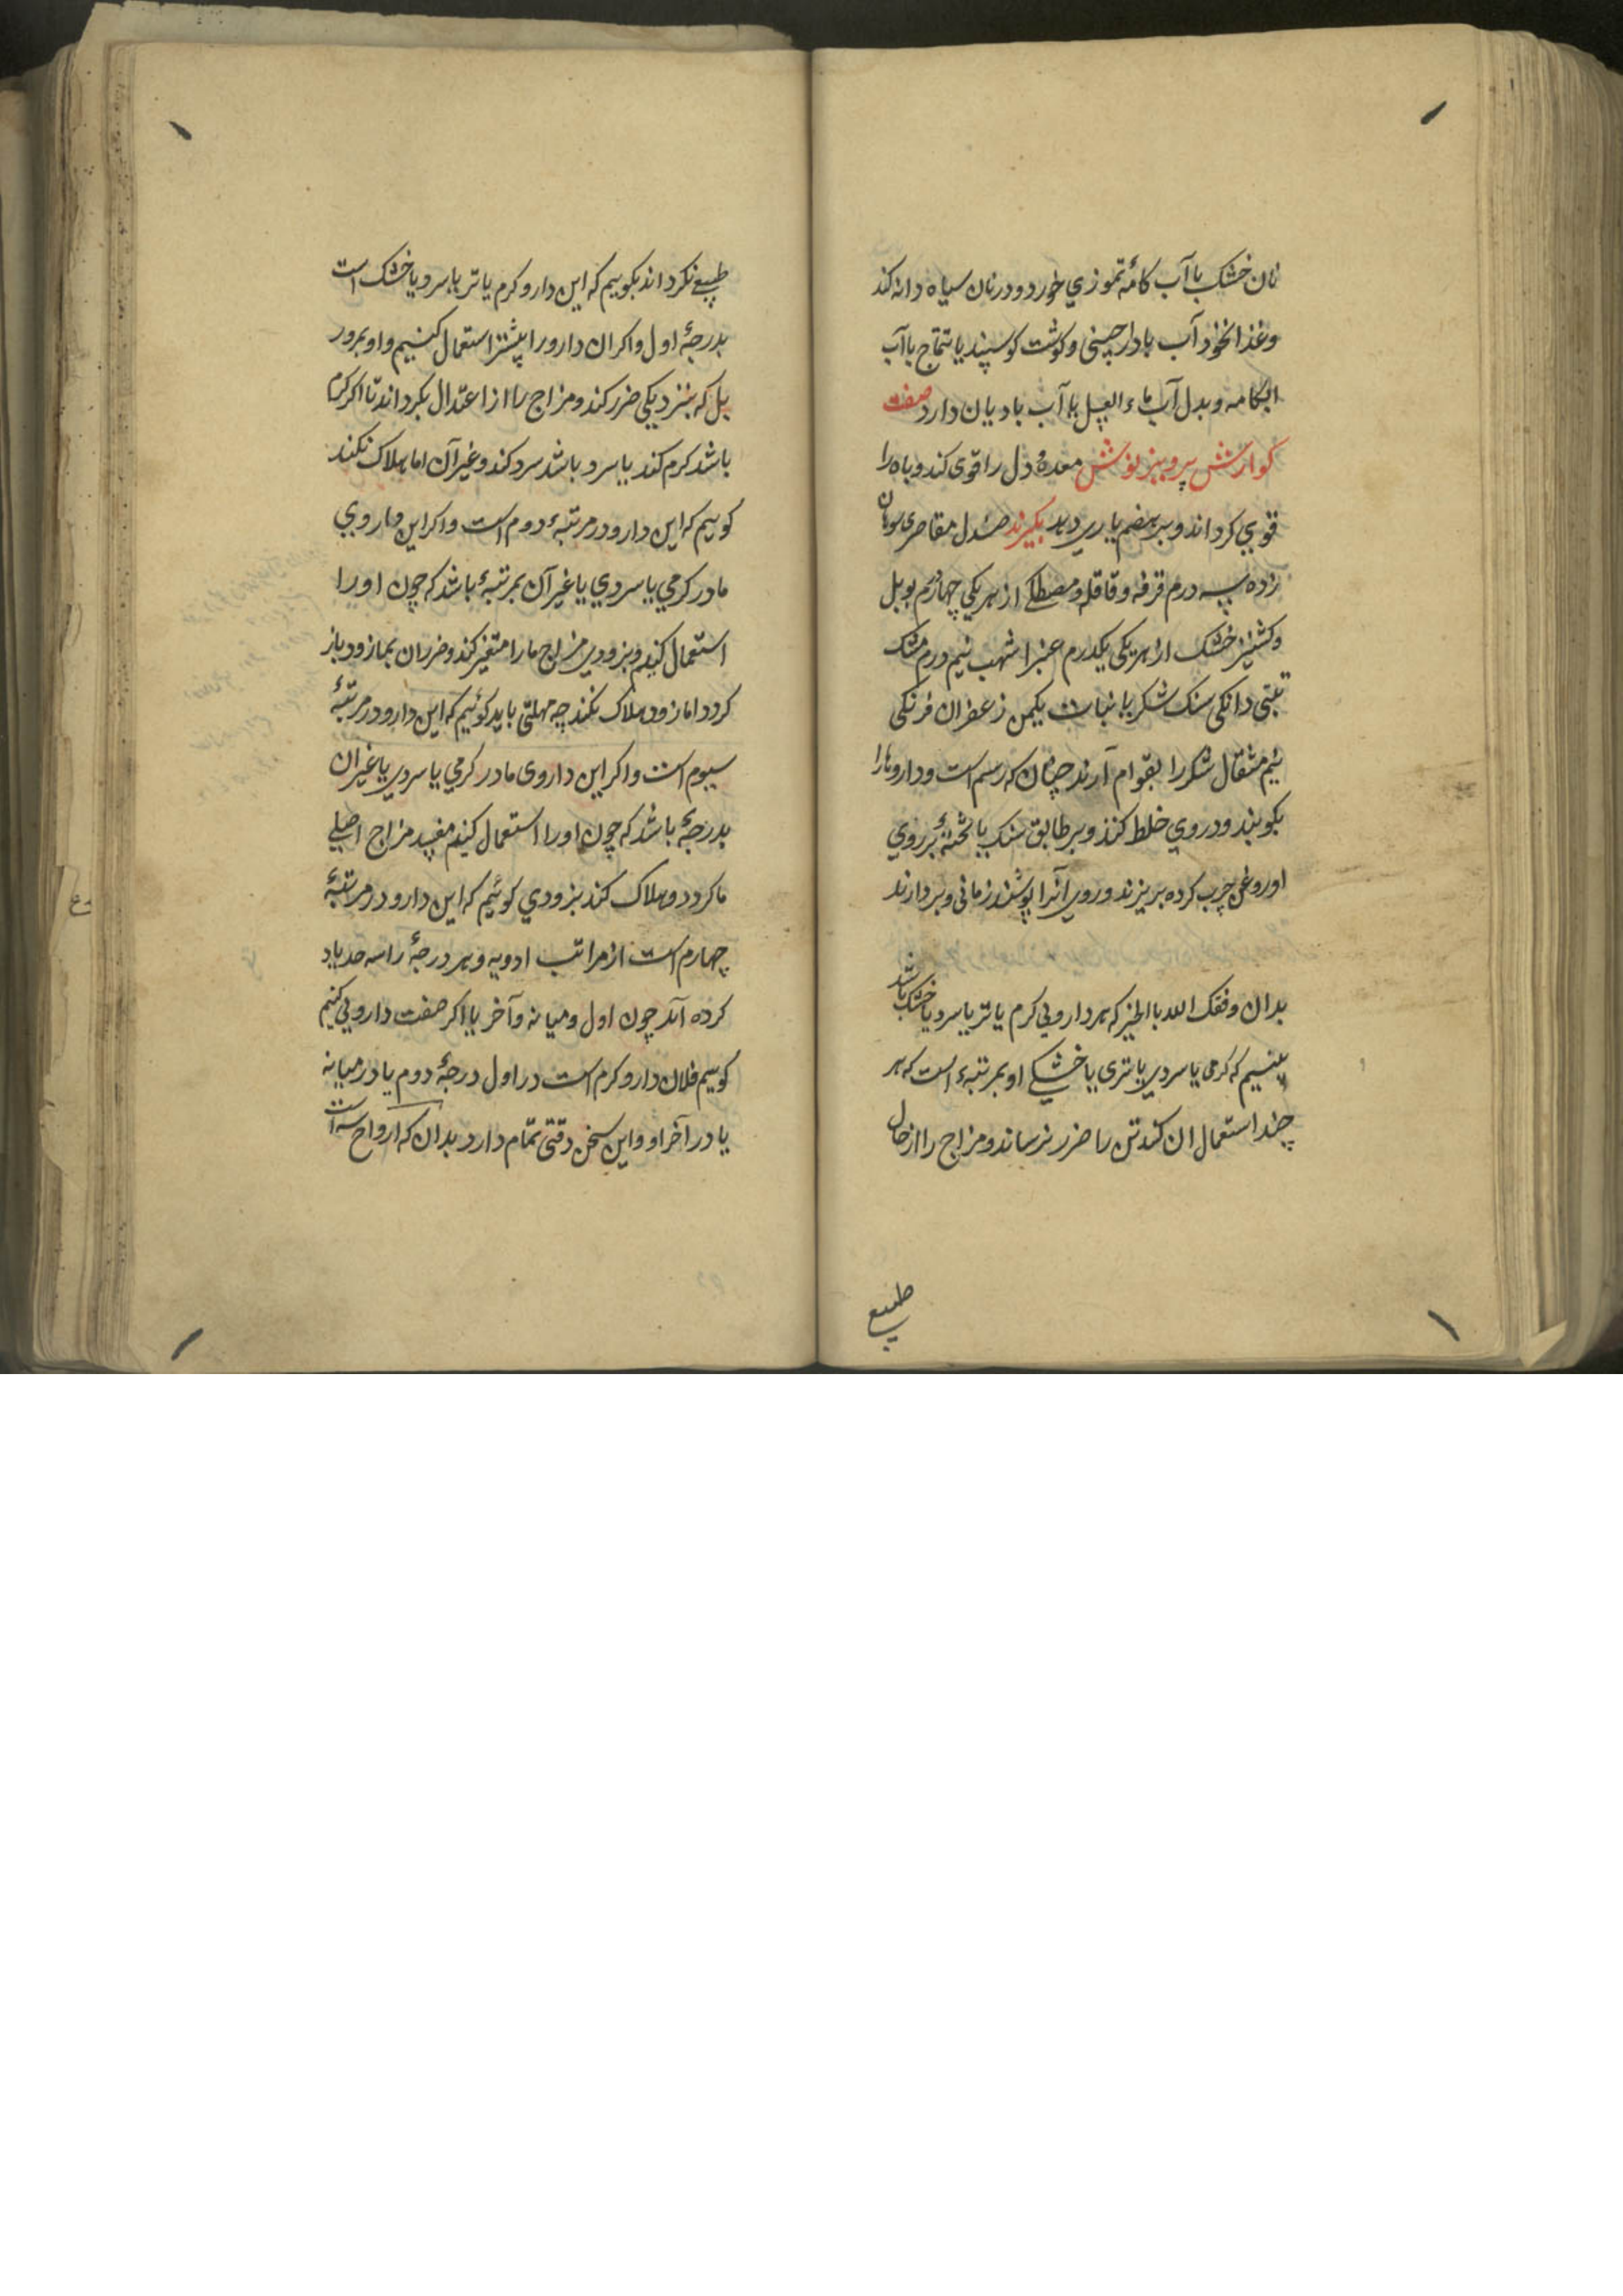 نان خشک با آب کامهٔ تموزی خورد و در نان سیاه دانه کند
وغذا نخود آب با دارچینی و کوشت کوسپند یا تتماج با آب
ابکامه و بدل آب ماء العسل یا آب بادیان دارد صفت
کوارش پرویز نوش معده و دل را قوی کند و باه را
قوی کرداند و بر هضم یاری دهد بکیرند صندل مقاصری سوهان
زده سه درم قرفه و قاقله و مصطکی از هر یکی چهاردرم
وکشنیز خشک از هر یکی یکدرم عنبر اشهب نیم درم مشک
تبتی دانکی سنک شکر یا نبات یکمن زعفران فرنکی
نیم مثقال شکر را بقوام آرند چنان که رسم است و داروها را
بکوبند و در وی خلط کنند و بر طابق سنک یا تختهٔ بر روی
او روغن چرب کرده بریزند و روی آنرا پوشند زمانی و بردارند
بدان وفقک الله بالخیر که هر دارویی کرم یا تر یا سرد یا خشک باشد
بینیم که کرمی یا سردی یا تری یا خشکی او بمرتبهٔ است که هر
چند استعمال ان کند تن را ضرر نرساند و مزاج را از حال
طبیع
طبیع نکرداند بکوییم که این دارو کرم یا تر یا سرد یا خشک است
بدرجهٔ اول و اکر ان دارو را بیشتر استعمال کنیم و او بمرور
بل که بنزدیکی ضرر کند و مزاج را از اعتدال بکرداند تا اکر کرم
باشد کرم کند یا سرد باشد سرد کند و غیر آن اما هلاک نکند
کوییم که این دارو در مرتبهٔ دوم است و اکر این داروی
ما در کرمی یا سردی یا غیر آن بمرتبهٔ باشد که چون او را
استعمال کنیم و بزودی مزاج ما را متغیر کند و ضرر ان بما زود باز
کردد اما زود هلاک نکند چه مهلتی باید کوئیم که این دارو در مرتبهٔ
سیوم است و اکر این داروی ما در کرمی یا سردی یا غیر ان
بدرجهٔ باشد که چون او را استعمال کنیم مفسد مزاج اصلی
ما کردد و هلاک کند بزودی کوئیم که این دارو در مرتبهٔ
چهارم است از مراتب ادویه و هر درجهٔ را سه حد یاد
کرده اند چون اول و میانه و آخر یا اکر صفت دارویی کنیم
کوییم فلان دارو کرم است در اول درجهٔ دوم یا در میانه
یا در آخر او و این سخن دقتی تمام دارد بدان که ارواح سه است